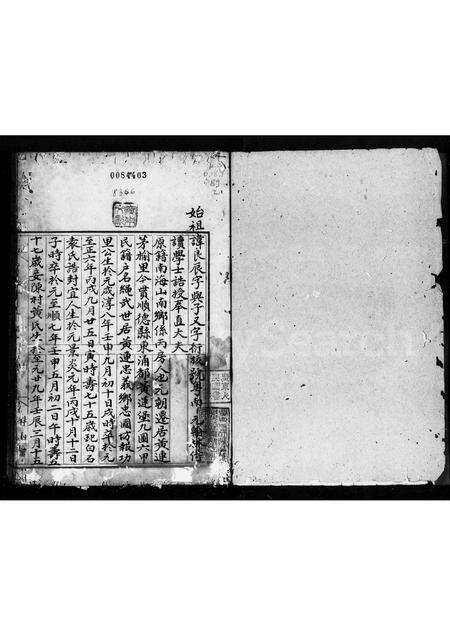 0084403
8346
始祖諱良辰字與子又字衍
讀學士誥授奉直大夫
原籍南海山南鄉係丙房人也元朝遷居黃連
茅榆里今貫順德縣東涌都黃連堡九圖六甲
民籍戶名綿武世居黃連忠義鄉忠國坊報功
里公生於元咸淳八年壬申九月初十日戌時卒於元
至正六年丙戌九月廿五日寅時壽七十五歲配白石
袁氏誥封宜人生於元景炎元年丙戌十月十二日
子時卒於元至順七年壬申五月初二日午時壽五
十七歲妾陳村黃氏生於至元廿九年壬辰二月十五